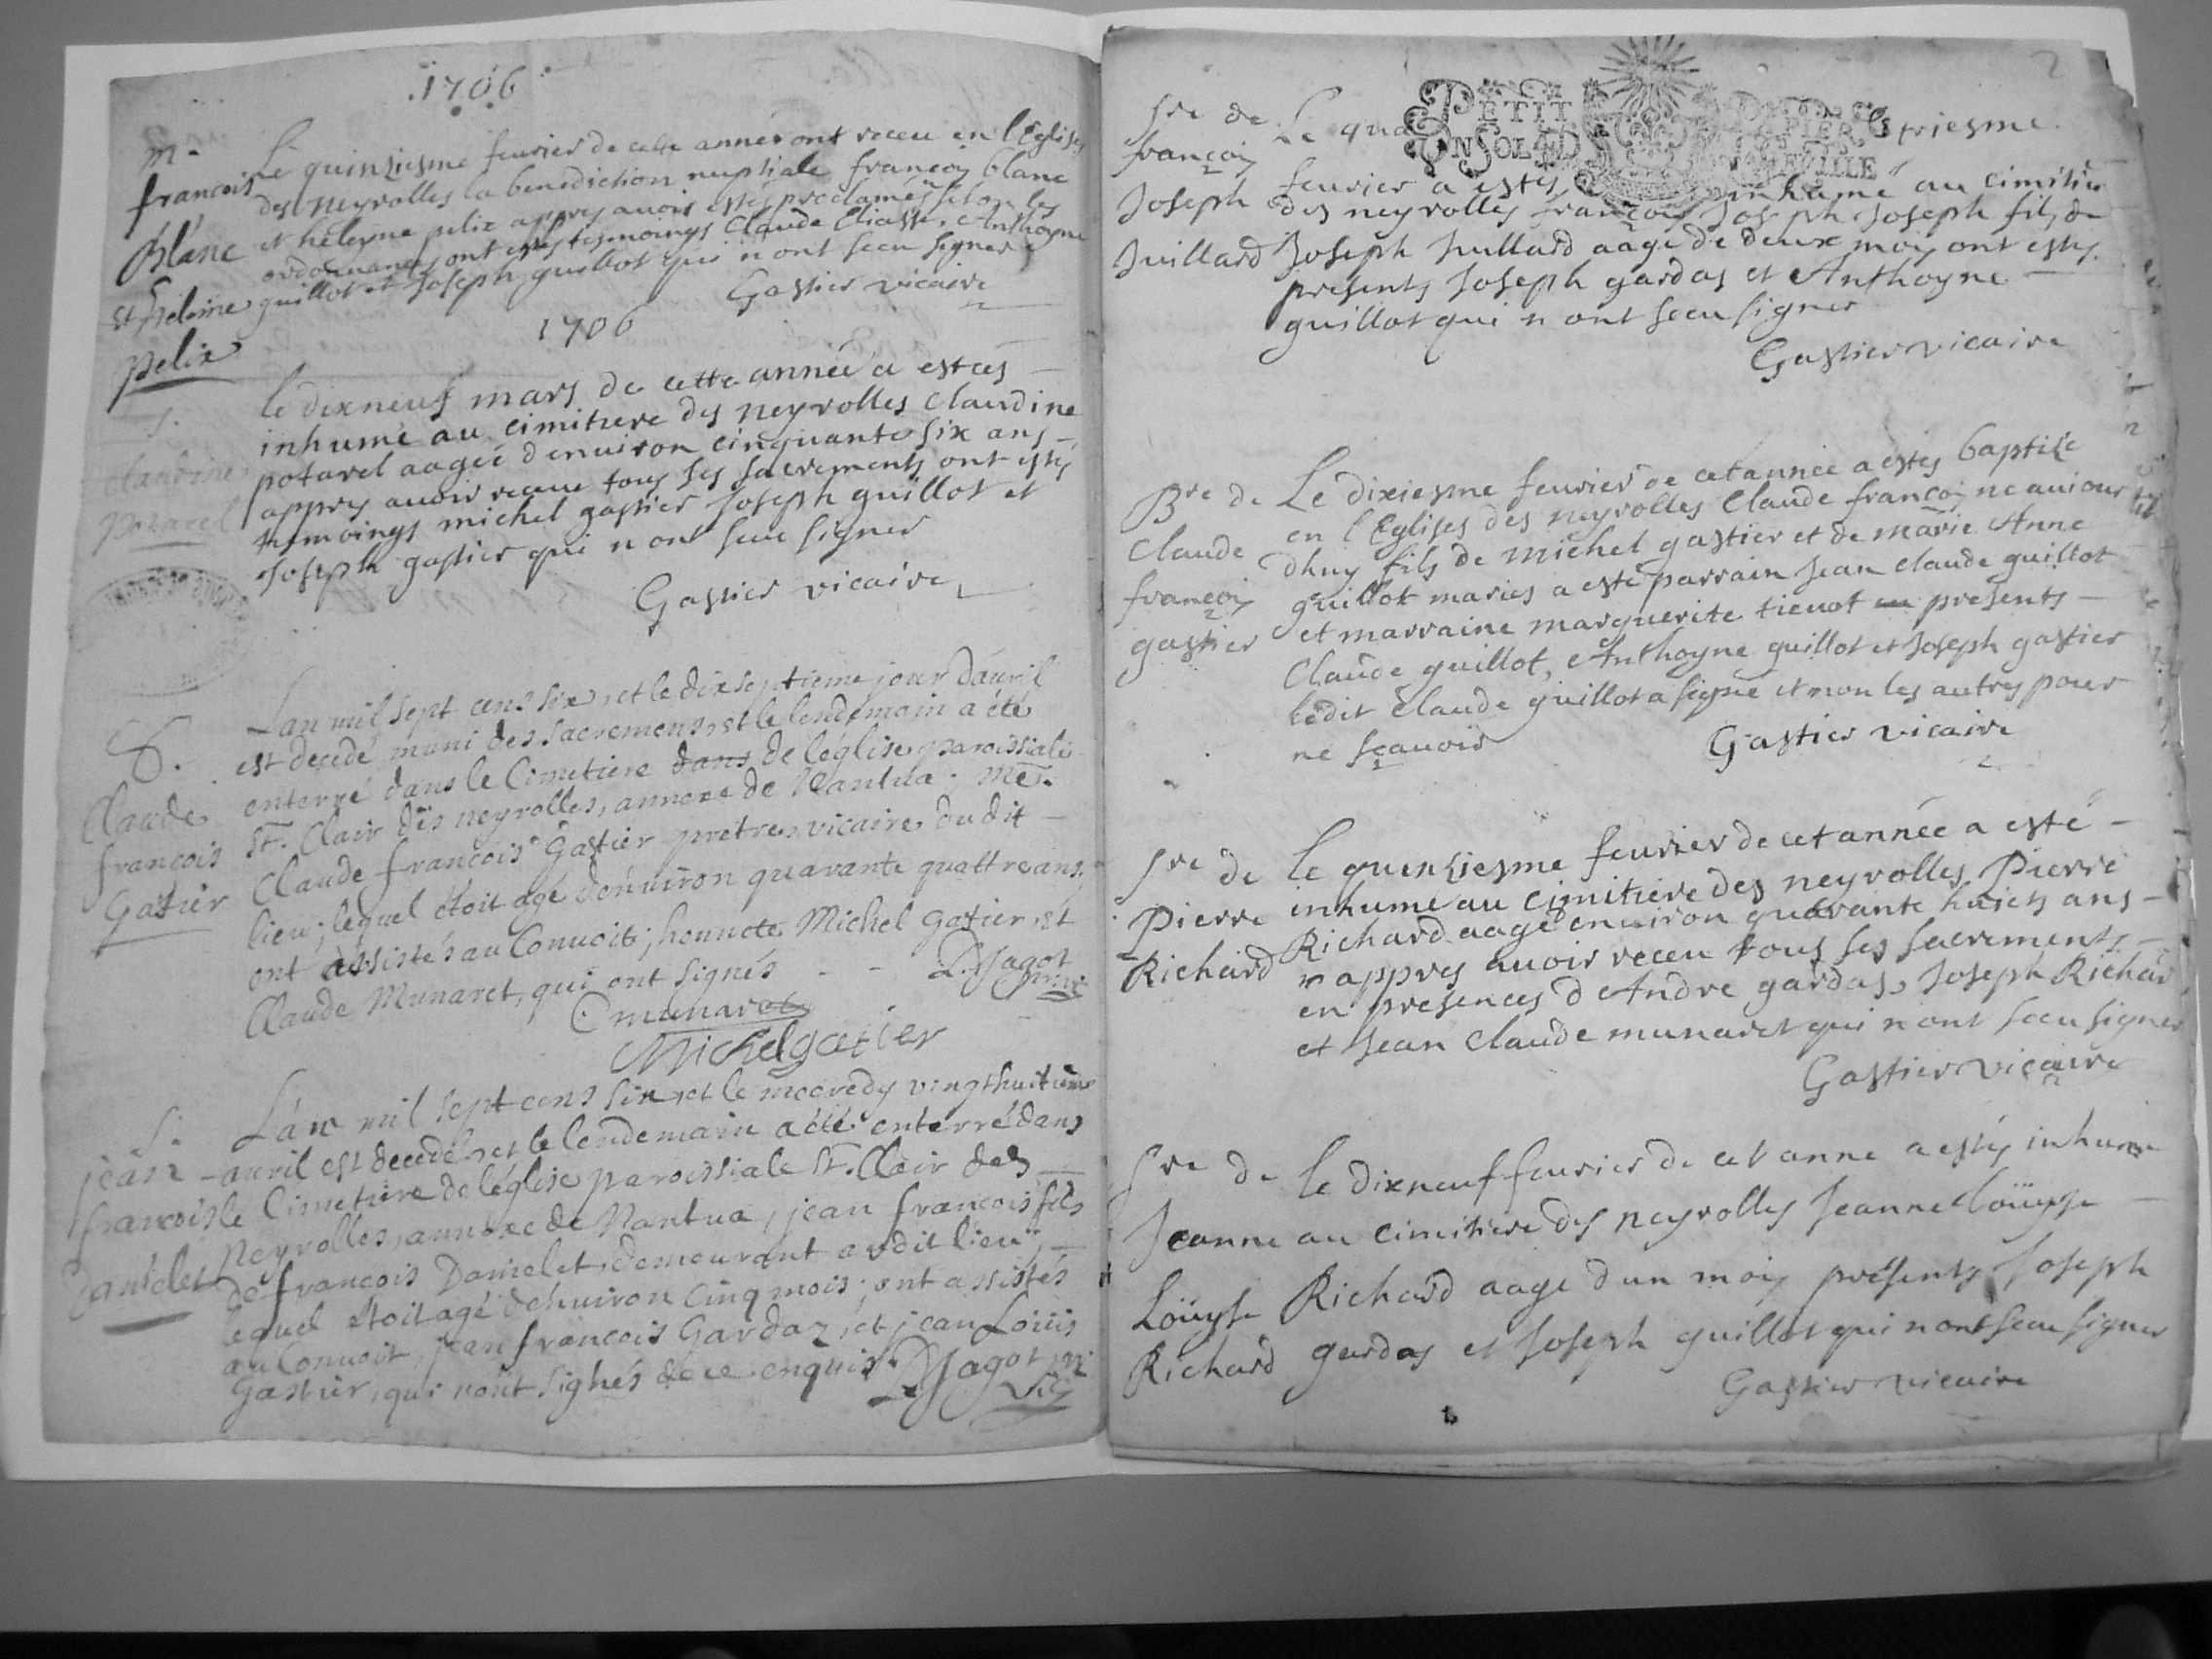 .1706.
m.
françois
blanc
et heleine
pelix
Le quinziesme feurier de cette année ont receu en l Eglises
des neyrolles la benediction nuptiale françoiy blanc
et heleyne pelix appres auoir estés proclamés selon les
ordonnances ont estés tesmoings Claude Eliasse, Anthoyne
guillot et Joseph guillot qui n ont sceu signer
Gastier vicaire
1706
S.
claudine
potarel
le dixneuf mars de cette année a estées
inhumé au cimitiere des neyrolles Claudine
potarel aagée denuiron cinquante six ans
appres auoir receue tous ses sacrements ont estés
tesmoings michel gastier Joseph guillot et
Joseph gastier qui n ont sceu signer
Gastier vicaire
S.
Claude
françois
Gastier
Lan mil sept cens six, et le dix septieme jour dauril
est decedé muni des sacremens, et le lendemain a été
enterré dans le Cimetiere dans de léglise paroissiale
St. Clair des neyrolles, annexe de Nantua; me.
Claude françois Gastier pretre, vicaire dudit
lieu; lequel étoit agé denuiron quarante quattre ans,
ont assistés au Conuoit; honnete Michel Gastier, et
Claude Munaret, qui ont signés - - D. Jagot
C munaret
Michel gatier
S.
jean
françois
Danielet
Lán mil sept cens six, et le mecredy vingthuitieme
auril est decedé, et le lendemain a été enterré dans
le Cimetiere de léglise paroissiale St. Clair des
Neyrolles, annexe de Nantua, jean françois fils
de françois Danielet, demeurant audit lieu;
lequel étoit agé denuiron Cinq mois; ont assistés
au Conuoit, jean françois Gardaz, et jean Loüis
Gastier, qui nont signés de ce enquis. D Jagot
2
Sre de
françoiy
Joseph
Juillard
PETIT PAPIER
UN SOL
Le qua
feurier a estés inhumé au cimitiere
des neyrolles françoiy Joseph Joseph fils de
Joseph Jullard aagé de deux moiy ont estés
presents Joseph gardas et Anthoyne
guillot qui n ont sceu signer
Gastier vicaire
Bre de
Claude
françoiy
gastier
Le dixiesme feurier de cet année a estés baptisé
en l Eglises des neyrolles Claude françoiy né auiour
dhuy fils de michel gastier et de marie Anne
guillot mariés a esté parrain Jean claude guillot
et marraine marguerite tienot presents
Claude guillot, Anthoyne guillot et Joseph gastier
ledit Claude guillot a signé et non les autres pour
ne sçauoir
Gastier vicaire
Sre de
Pierre
Richard
le quinziesme feurier de cet année a esté
inhumé au cimitiere des neyrolles Pierre
Richard aagé enuiron quarante huicts ans
appres auoir receu tous ses sacrements
en presences d Andre gardas, Joseph Richar
et Jean Claude munaret qui n ont sceu signer
Gastier vicaire
Sre de
Jeanne
Loüyse
Richard
le dixneuf feurier de cet anne a estés inhume
au cimitiere des neyrolles Jeanne loüyse
Richard aagé dun moiy présents Joseph
gardas et Joseph guillot qui n ont sceu signer
Gastier vicaire